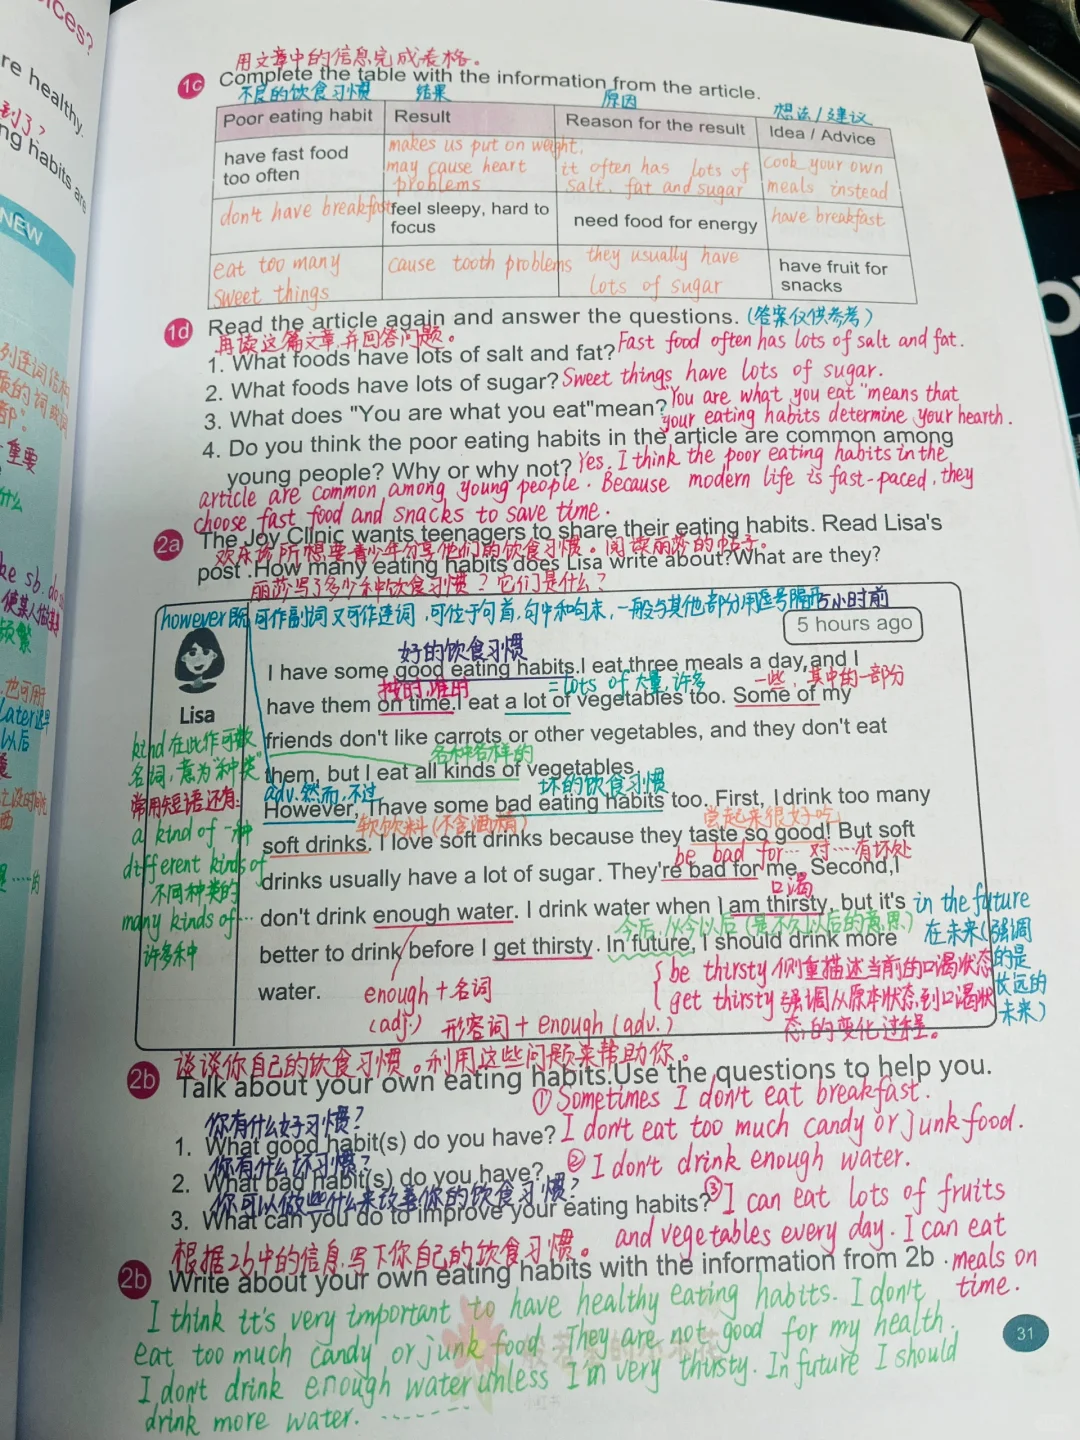 oices?
re healthy.
到了?
ng habits are
NEW
用文章中的信息完成表格。
1c Complete the table with the information from the article.
不良的饮食习惯 结果 原因 想法/建议
Poor eating habit Result Reason for the result Idea / Advice
have fast food too often
makes us put on weight, may cause heart problems
it often has lots of salt, fat and sugar
Cook your own meals instead
don't have breakfast
feel sleepy, hard to focus
need food for energy
have breakfast
eat too many sweet things
cause tooth problems
they usually have lots of sugar
have fruit for snacks
1d Read the article again and answer the questions. (答案仅供参考)
再读这篇文章,并回答问题。
1. What foods have lots of salt and fat? Fast food often has lots of salt and fat.
2. What foods have lots of sugar? Sweet things have lots of sugar.
3. What does "You are what you eat"mean? "You are what you eat" means that
your eating habits determine your hearth.
4. Do you think the poor eating habits in the article are common among
young people? Why or why not? Yes, I think the poor eating habits in the
article are common among young people. Because modern life is fast-paced, they
choose fast food and snacks to save time.
2a The Joy Clinic wants teenagers to share their eating habits. Read Lisa's
欢乐诊所想要青少年分享他们的饮食习惯。阅读丽莎的帖子。
post .How many eating habits does Lisa write about?What are they?
丽莎写了多少种饮食习惯?它们是什么?
however既可作副词又可作连词,可位于句首,句中和句末,一般与其他部分用逗号隔开
5小时前
5 hours ago
Lisa
好的饮食习惯
I have some good eating habits.I eat three meals a day,and I
=lots of 大量,许多 一些,其中的一部分
have them on time.I eat a lot of vegetables too. Some of my
friends don't like carrots or other vegetables, and they don't eat
各种各样的
them, but I eat all kinds of vegetables.
adv.然而,不过 坏的饮食习惯
However, I have some bad eating habits too. First, I drink too many
软饮料(不含酒精) 尝起来很好吃
soft drinks. I love soft drinks because they taste so good! But soft
be bad for… 对……有坏处
drinks usually have a lot of sugar. They're bad for me. Second,I
口渴
don't drink enough water. I drink water when I am thirsty, but it's
今后,从今以后(是不久以后的意思)
better to drink before I get thirsty. In future, I should drink more
water.
kind在此作可数
名词,意为"种类"
常用短语还有:
a kind of 一种
different kinds of
不同种类的
many kinds of…
许多种
enough+名词
(adj.)
形容词+enough(adv.)
be thirsty 侧重描述当前的口渴状态
get thirsty 强调从原本状态到口渴状
态的变化过程。
in the future
在未来(强调
的是
长远的
未来)
谈谈你自己的饮食习惯。利用这些问题来帮助你。
2b Talk about your own eating habits.Use the questions to help you.
①Sometimes I don't eat breakfast.
你有什么好习惯?
1. What good habit(s) do you have? I don't eat too much candy or junk food.
你有什么坏习惯?
2. What bad habit(s) do you have? ②I don't drink enough water.
你可以做些什么来改善你的饮食习惯?
3. What can you do to improve your eating habits? ③I can eat lots of fruits
and vegetables every day. I can eat
meals on
time.
根据2b中的信息,写下你自己的饮食习惯。
2b Write about your own eating habits with the information from 2b .
I think it's very important to have healthy eating habits. I don't
eat too much candy or junk food. They are not good for my health.
I don't drink enough water unless I'm very thirsty. In future I should
drink more water. -------
31
小红书